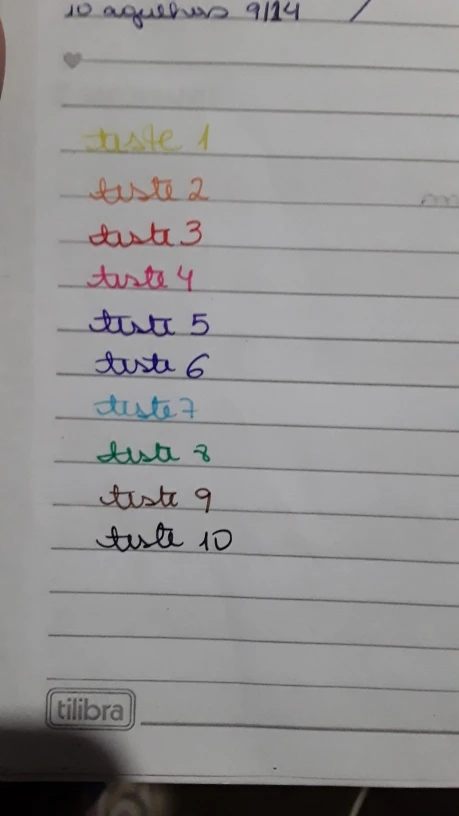 10 agulhas 9/14 /
teste 1
teste 2
teste 3
teste 4
teste 5
teste 6
teste 7
teste 8
teste 9
teste 10
tilibra